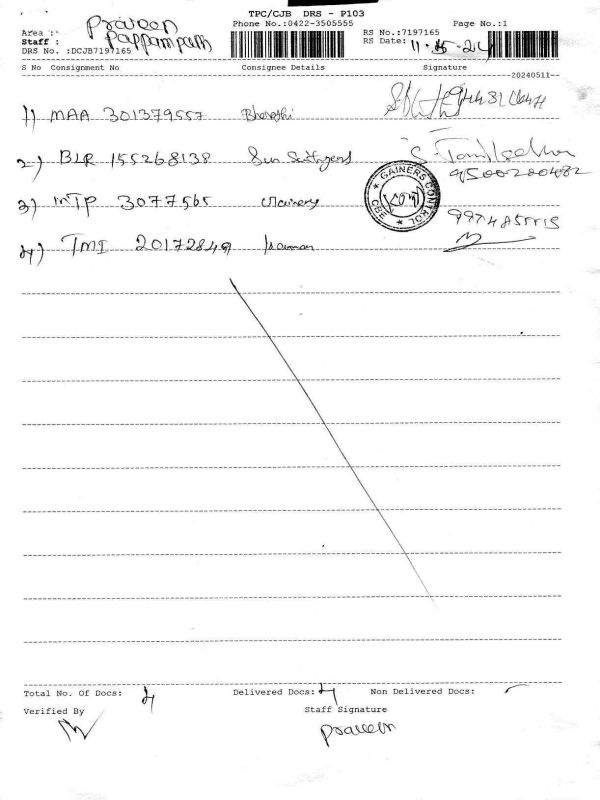 TPC/CJB DRS - P103
Area : Praveen
Phone No.:0422-3505555
Page No.:1
Staff : Pappampatti
RS No.:7197165
DRS No. :DCJB7197165
RS Date: 11-5-24
S No Consignment No Consignee Details Signature
--20240511--
1) MAA 301379557 Bharathi
2) BLR 155268138 Sun
9500200482
3) MTP 3077565
GAINERS CONTROL
CBE
4) TMI 20172849
Total No. Of Docs: 4 Delivered Docs: 4 Non Delivered Docs: -
Verified By Staff Signature
Praveen